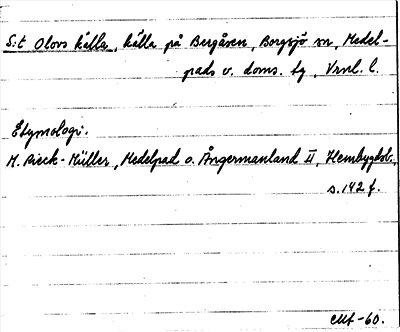 S:t Olovs källa, källa på Bergåsen, Borgsjö sn, Medel-
pads v. doms. tg, Vnrl. l.
Etymologi.
M. Rieck-Müller, Medelpad o. Ångermanland II, Hembygdsb.,
s. 142 f.
-60.